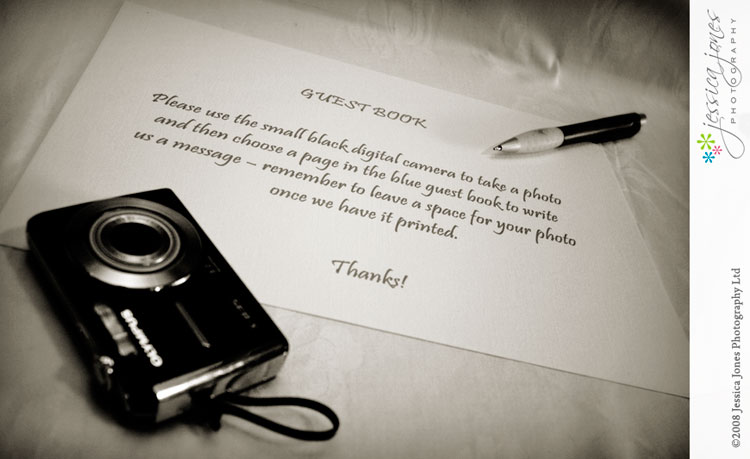 GUEST BOOK
Please use the small black digital camera to take a photo
and then choose a page in the blue guest book to write
us a message – remember to leave a space for your photo
once we have it printed.
Thanks!
OLYMPUS
jessica jones
PHOTOGRAPHY
©2008 Jessica Jones Photography Ltd